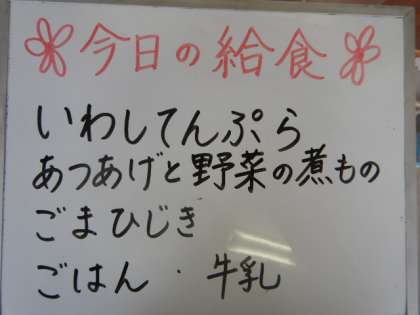 今日の給食
いわしてんぷら
あつあげと野菜の煮もの
ごまひじき
ごはん・牛乳